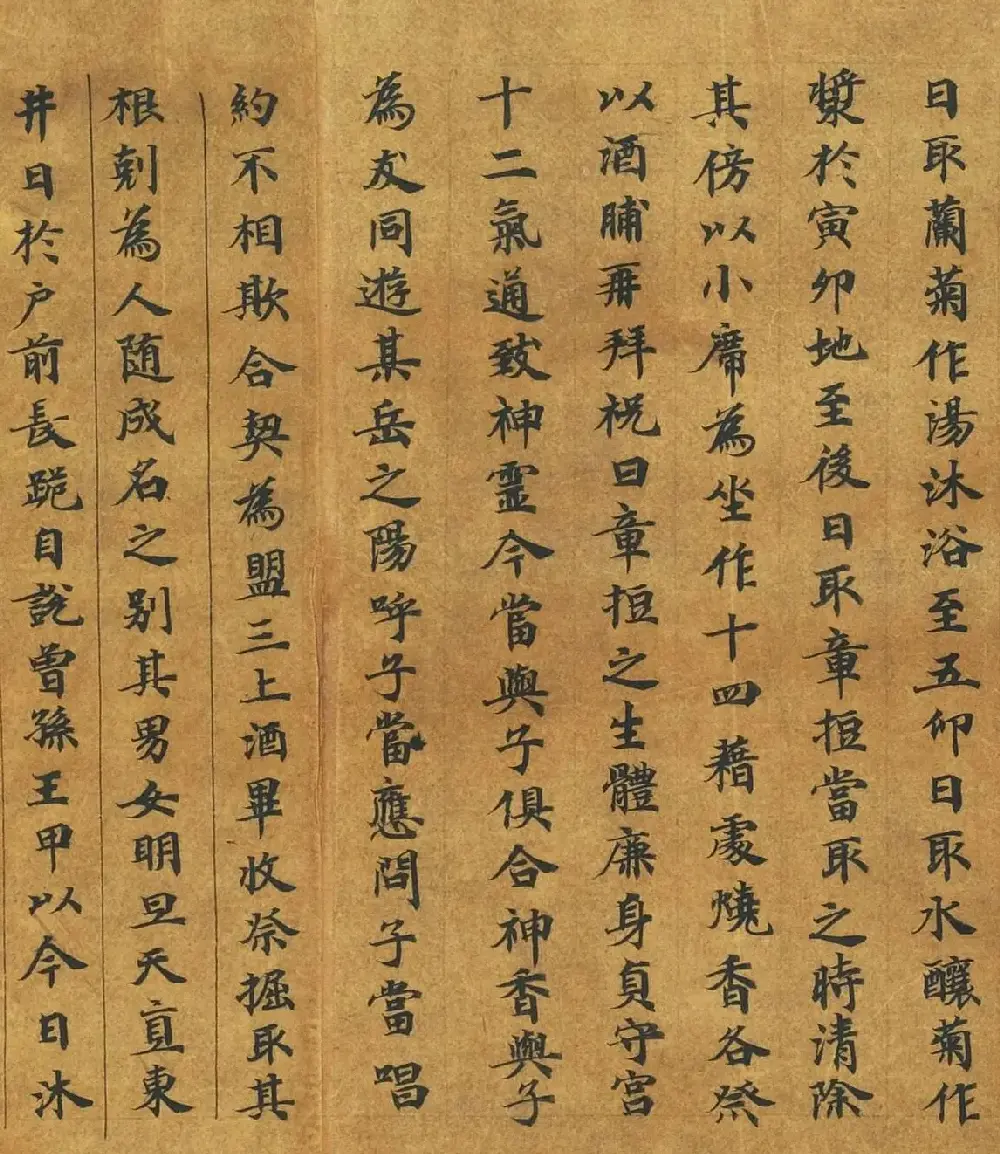 日取蘭菊作湯沐浴至五卯日取水釀菊作
漿於寅卯地至後日取章拒當取之時清除
其傍以小席為坐作十四藉處燒香各祭
以酒脯再拜祝曰章拒之生體廉身貞守宮
十二氣通致神靈今當與子俱合神香與子
為友同遊某岳之陽呼子當應問子當唱
約不相欺合契為盟三上酒畢收祭掘取其
根剋為人随成名之别其男女明旦天亶東
井日於户前長跪自說曾孫王甲以今日沐